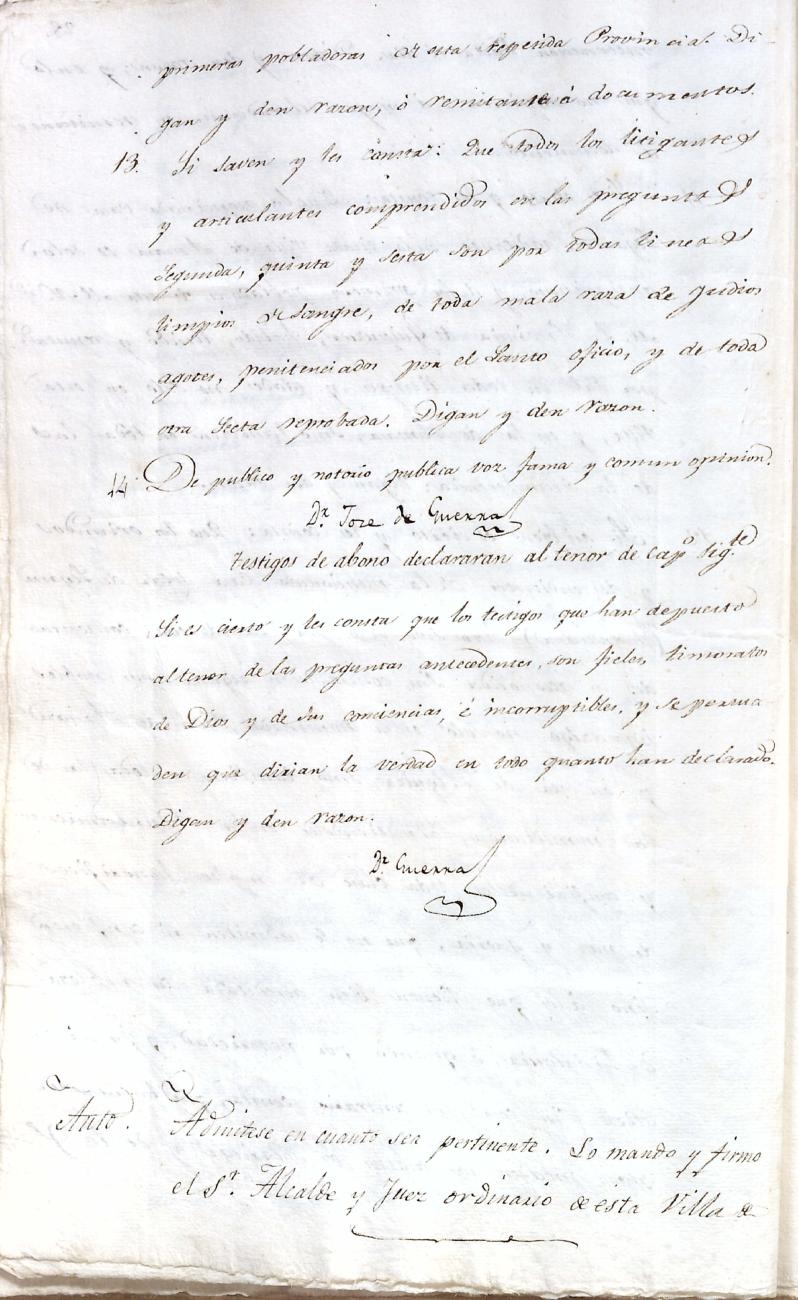 primeras pobladoras de esta repetida Provincia. Di-
gan y den razon, ò remitanse à documentos.
13. Si saven y les consta: Que todos los litigantes
y articulantes comprendidos en las preguntas
Segunda, quinta y sesta son por todas lineas
limpios de Sangre, de toda mala raza de Judios
agotes, penitenciados por el Santo oficio, y de toda
otra Secta reprobada. Digan y den razon.
14. De publico y notorio publica voz fama y comun opinion.
Dr. Joze de Guerra
testigos de abono declararan al tenor de capo. sigte.
Si es cierto y les consta que los testigos que han depuesto
al tenor de las preguntas antecedentes, son fieles, timoratos
de Dios y de sus conciencias, è incorruptibles, y se persua
den que dirian la verdad en todo quanto han declarado.
Digan y den razon.
Dr. Guerra
Auto. Admitese en cuanto sea pertinente. Lo mando y firmo
el Sr. Alcalde y Juez ordinario de esta Villa de